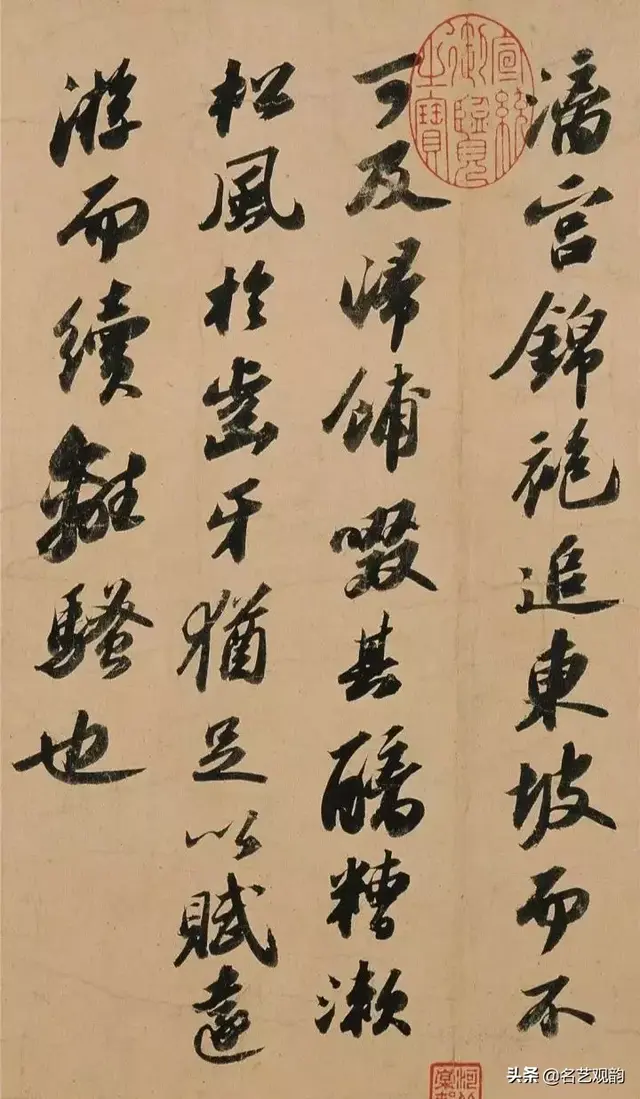 漓宮錦袍追東坡而不
可及歸餔啜其醨糟漱
松風於齒牙猶足以賦遠
游而續離騷也
宣統御覽之寶
头条 @名艺观韵